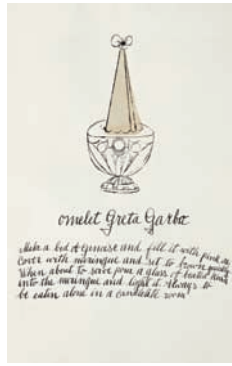 omelet Greta Garbo
Make a bed of genoise and fill it with pink
Cover with meringue and set to brown quickly
When about to serve pour a glass of heated
into the meringue and light it. Always to
be eaten alone in a candlelit room